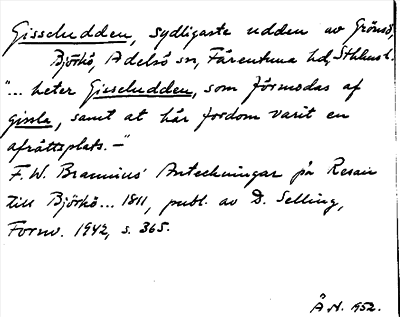 Gisseludden, sydligaste udden av Grönsö,
Björkö, Adelsö sn, Färentuna hd, Sthlms l.
"... heter Gisseludden, som förmodas af
gissla, samt at här fordom varit en
afrättsplats. –"
F. W. Brannius' Anteckningar på Resan
till Björkö ... 1811, publ. av D. Selling,
Fornv. 1942, s. 365.
Ä N. 1952.